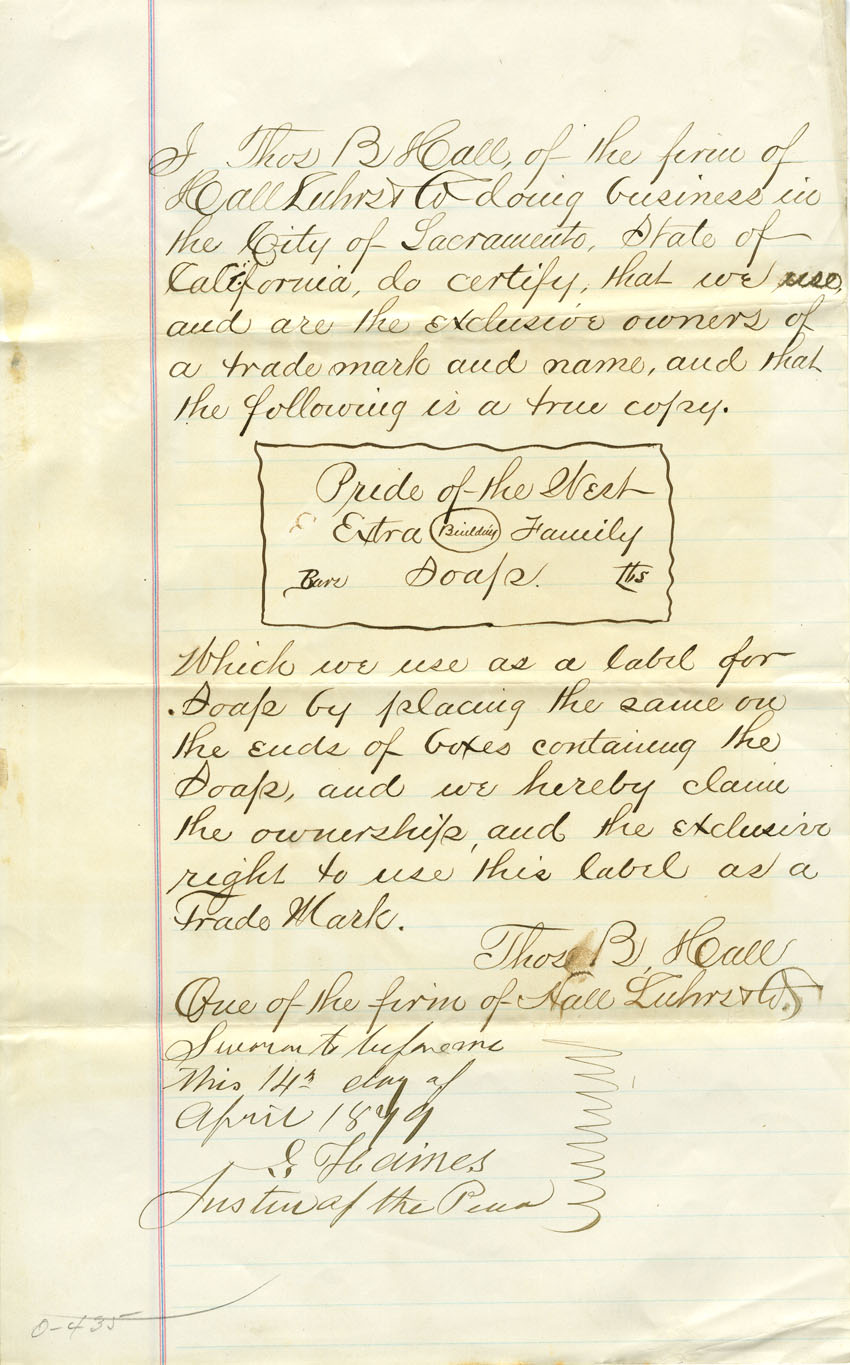 I Thos B Hall, of the firm of
Hall Luhrs & Co doing business in
the City of Sacramento, State of
California, do certify, that we use,
and are the exclusive owners of
a trade mark and name, and that
the following is a true copy.
Pride of the West
Extra Family
Bars Soap. lbs
Which we use as a label for
Soap by placing the same on
the ends of boxes containing the
Soap, and we hereby claim
the ownership, and the exclusive
right to use this label as a
Trade Mark.
Thos B. Hall
One of the firm of Hall Luhrs & Co.
Sworn to before me
this 14th day of
April 1879
Haines
Justice of the Peace
0-435